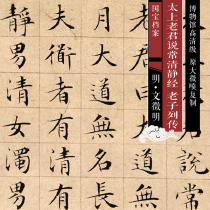 博物馆高清级 原大微喷复制
太上老君说常清静经 老子列传
国宝档案
明·文徵明
說常
大道無名長
夫道者有清有
靜男清女濁男